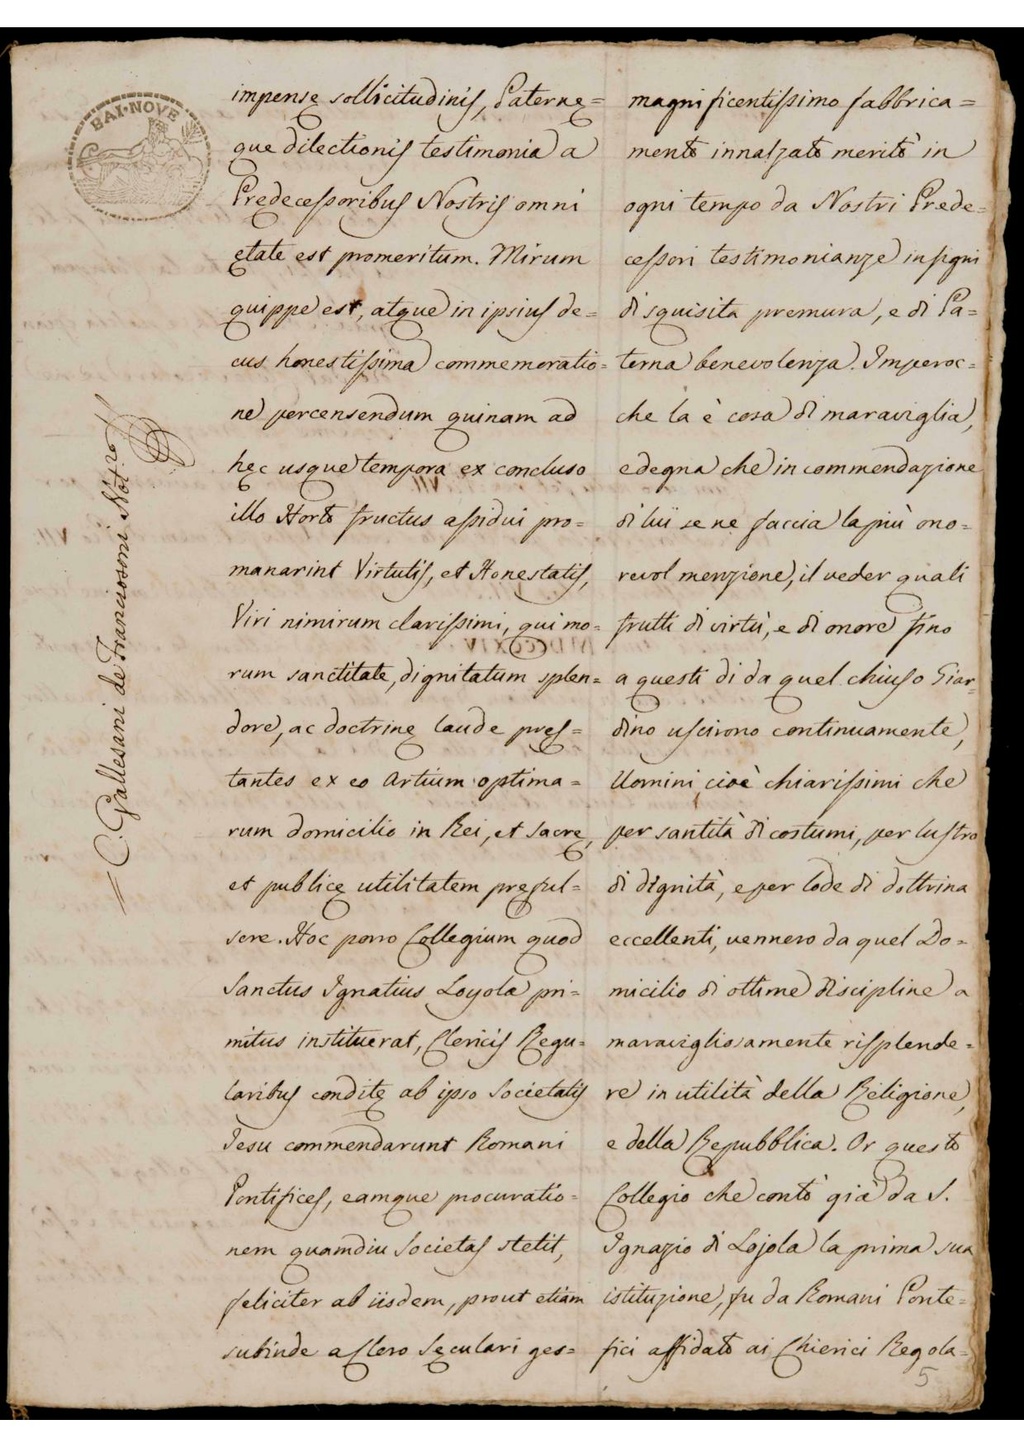 BAI·NOVE
impensę sollicitudinis, Paternę=
que dilectionis testimonia a
Predecessoribus Nostris omni
ętate est promeritum. Mirum
quippe est, atque in ipsius de=
cus honestissima commemoratio=
ne percensendum quinam ad
hęc usque tempora ex concluso
illo Horto fructus assidui pro=
manarint Virtutis, et Honestatis,
Viri nimirum clarissimi, qui mo=
rum sanctitate, dignitatum splen=
dore, ac doctrinę laude pręs=
tantes ex eo Artium optima=
rum domicilio in Rei, et sacrę,
et publicę utilitatem pręful=
sere. Hoc porro Collegium quod
Sanctus Ignatius Loyola pri=
mitus instituerat, Clericis Regu=
laribus conditę ab ipso Societatis
Jesu commendarunt Romani
Pontifices, eamque procuratio=
nem quamdiu Societas stetit,
feliciter ab iisdem, prout etiam
subinde a Clero Sęculari ges=
magnificentissimo fabbrica=
mento innalzato meritò in
ogni tempo da Nostri Prede=
cessori testimonianze insigni
di squisita premura, e di Pa=
terna benevolenza. Imperoc=
che la è cosa di maraviglia,
e degna che in commendazione
di lui se ne faccia la più ono=
revol menzione, il veder quali
frutti di virtù, e di onore fino
a questi di da quel chiuso Giar=
dino uscirono continuamente,
Uomini cioè chiarissimi che
per santità di costumi, per lustro
di dignità, e per lode di dottrina
eccellenti, vennero da quel Do=
micilio di ottime discipline a
maravigliosamente risplende=
re in utilità della Religione,
e della Repubblica. Or questo
Collegio che contò già da S.
Ignazio di Lojola la prima sua
istituzione, fu da Romani Ponte=
fici affidato ai Chierici Regola=
5
= C Gallesani de Franciosoni Not.ro